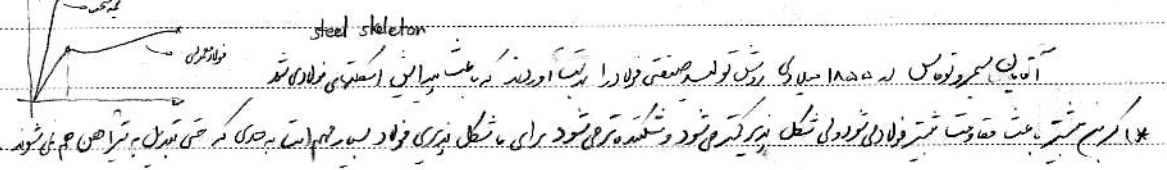 steel skeleton
فولاد معمولی
آقایان بسمر و توماس در ۱۸۵۵ میلادی روش تولید صنعتی فولاد را بدست آوردند که باعث پیدایش اسکلتهای فولادی شد
*) کربن بیشتر باعث مقاومت بیشتر فولاد می شود ولی شکل پذیر کمتر می شود و شکننده تر می شود برای ما شکل پذیری فولاد بسیار مهم است به حدی که حتی تبدیل به تیرآهن هم نمی شوند